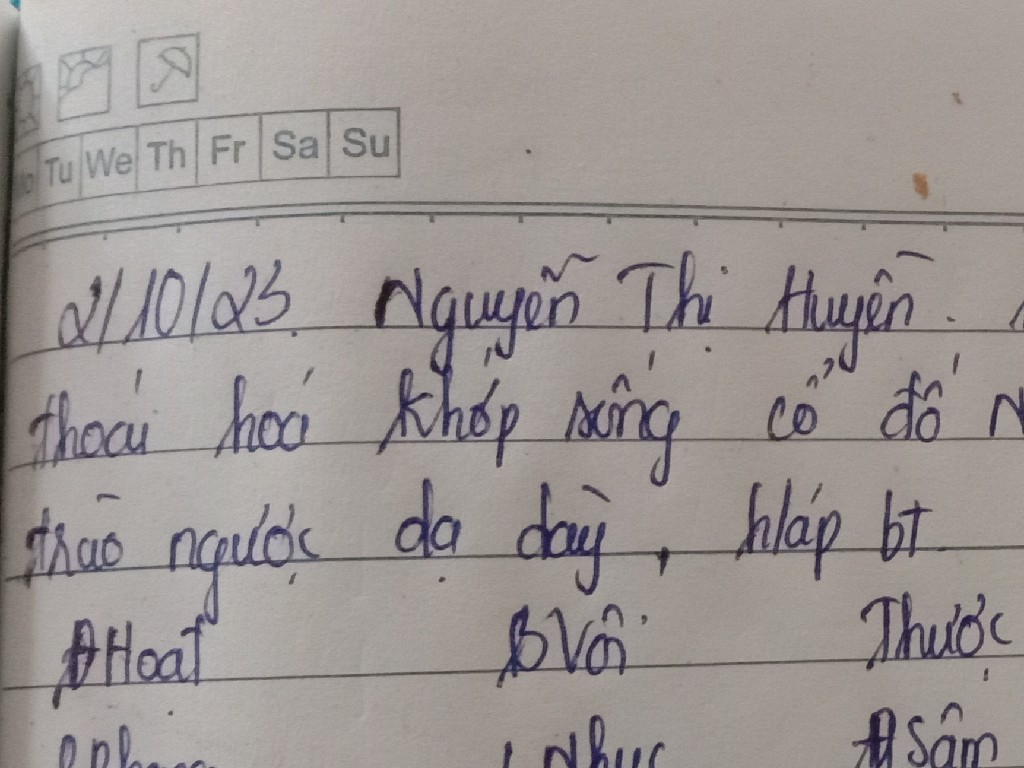 Tu We Th Fr Sa Su
2/10/23. Nguyễn Thị Huyền.
thoái hoá khớp sống cổ đố
trào ngược dạ dày, hláp bt
Hoạt BVôi Thược
Nhục Sâm